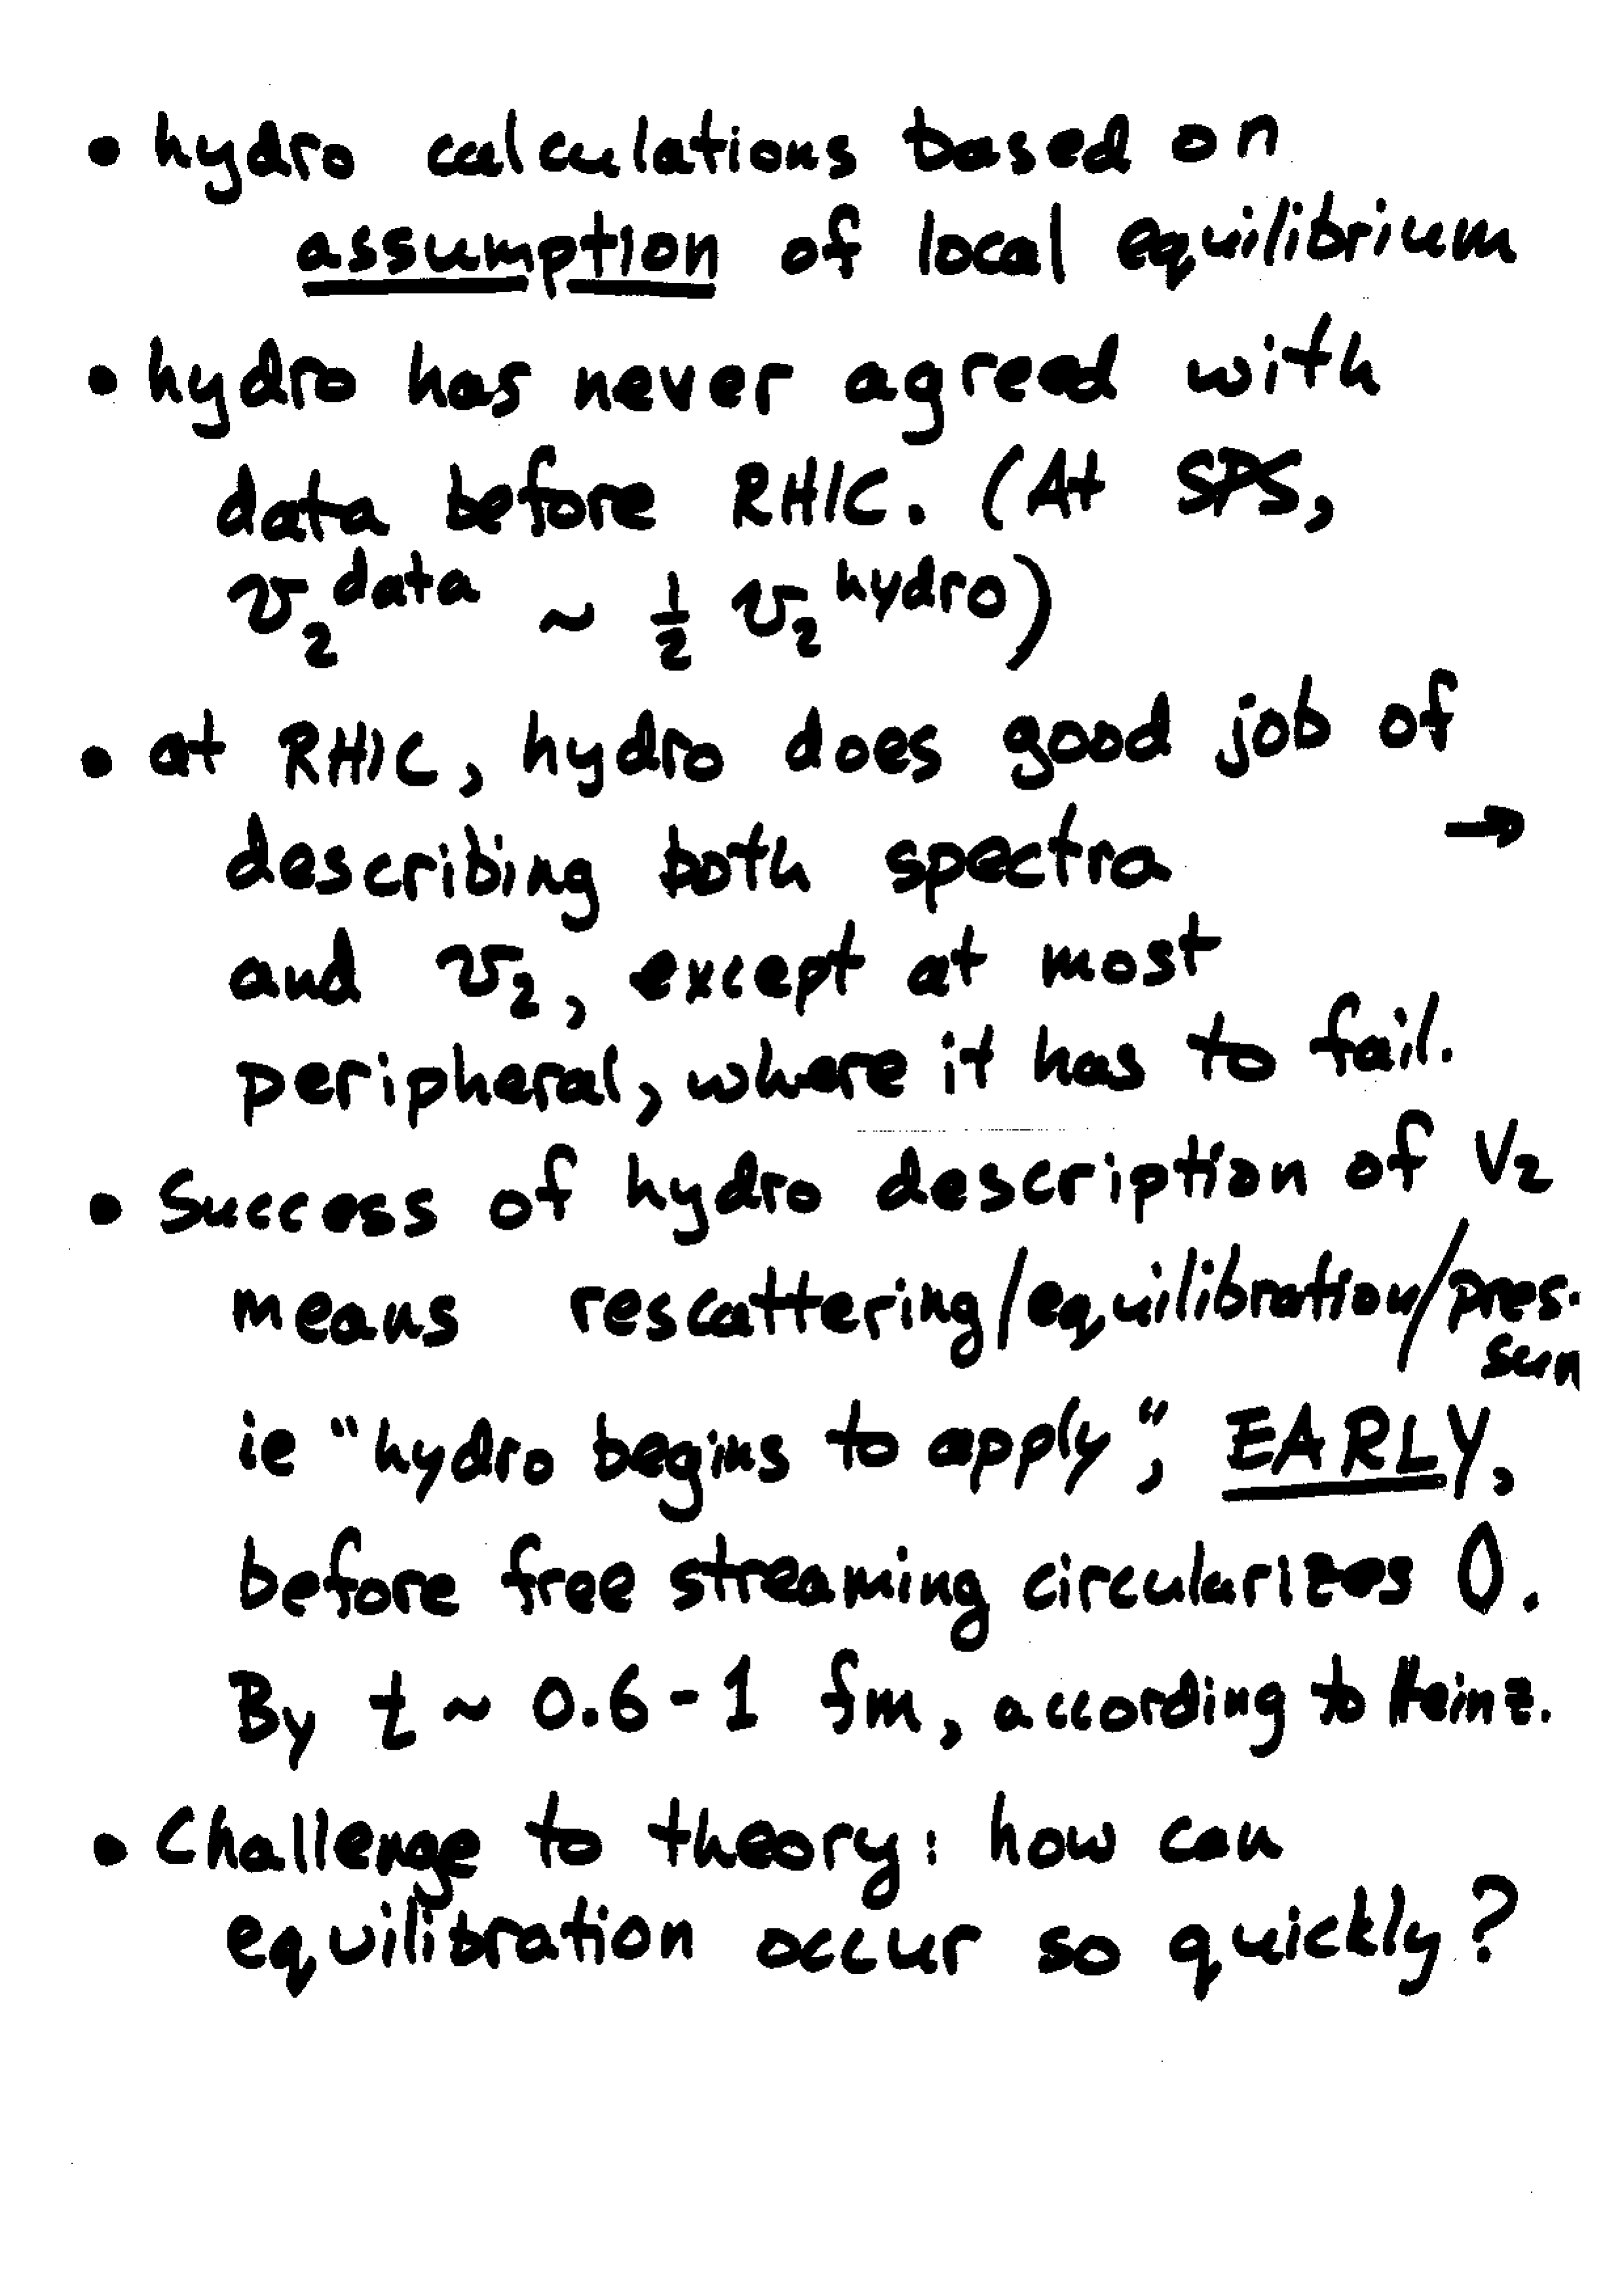 • hydro calculations based on
assumption of local equilibrium
• hydro has never agreed with
data before RHIC. (At SPS,
v₂^data ~ ½ v₂^hydro)
• at RHIC, hydro does good job of
→
describing both spectra
and v₂, except at most
peripheral, where it has to fail.
• Success of hydro description of V₂
means rescattering/equilibration/pres-
sur
ie "hydro begins to apply", EARLY,
before free streaming circularizes 0.
By t ~ 0.6-1 fm, according to Heinz.
• Challenge to theory: how can
equilibration occur so quickly?